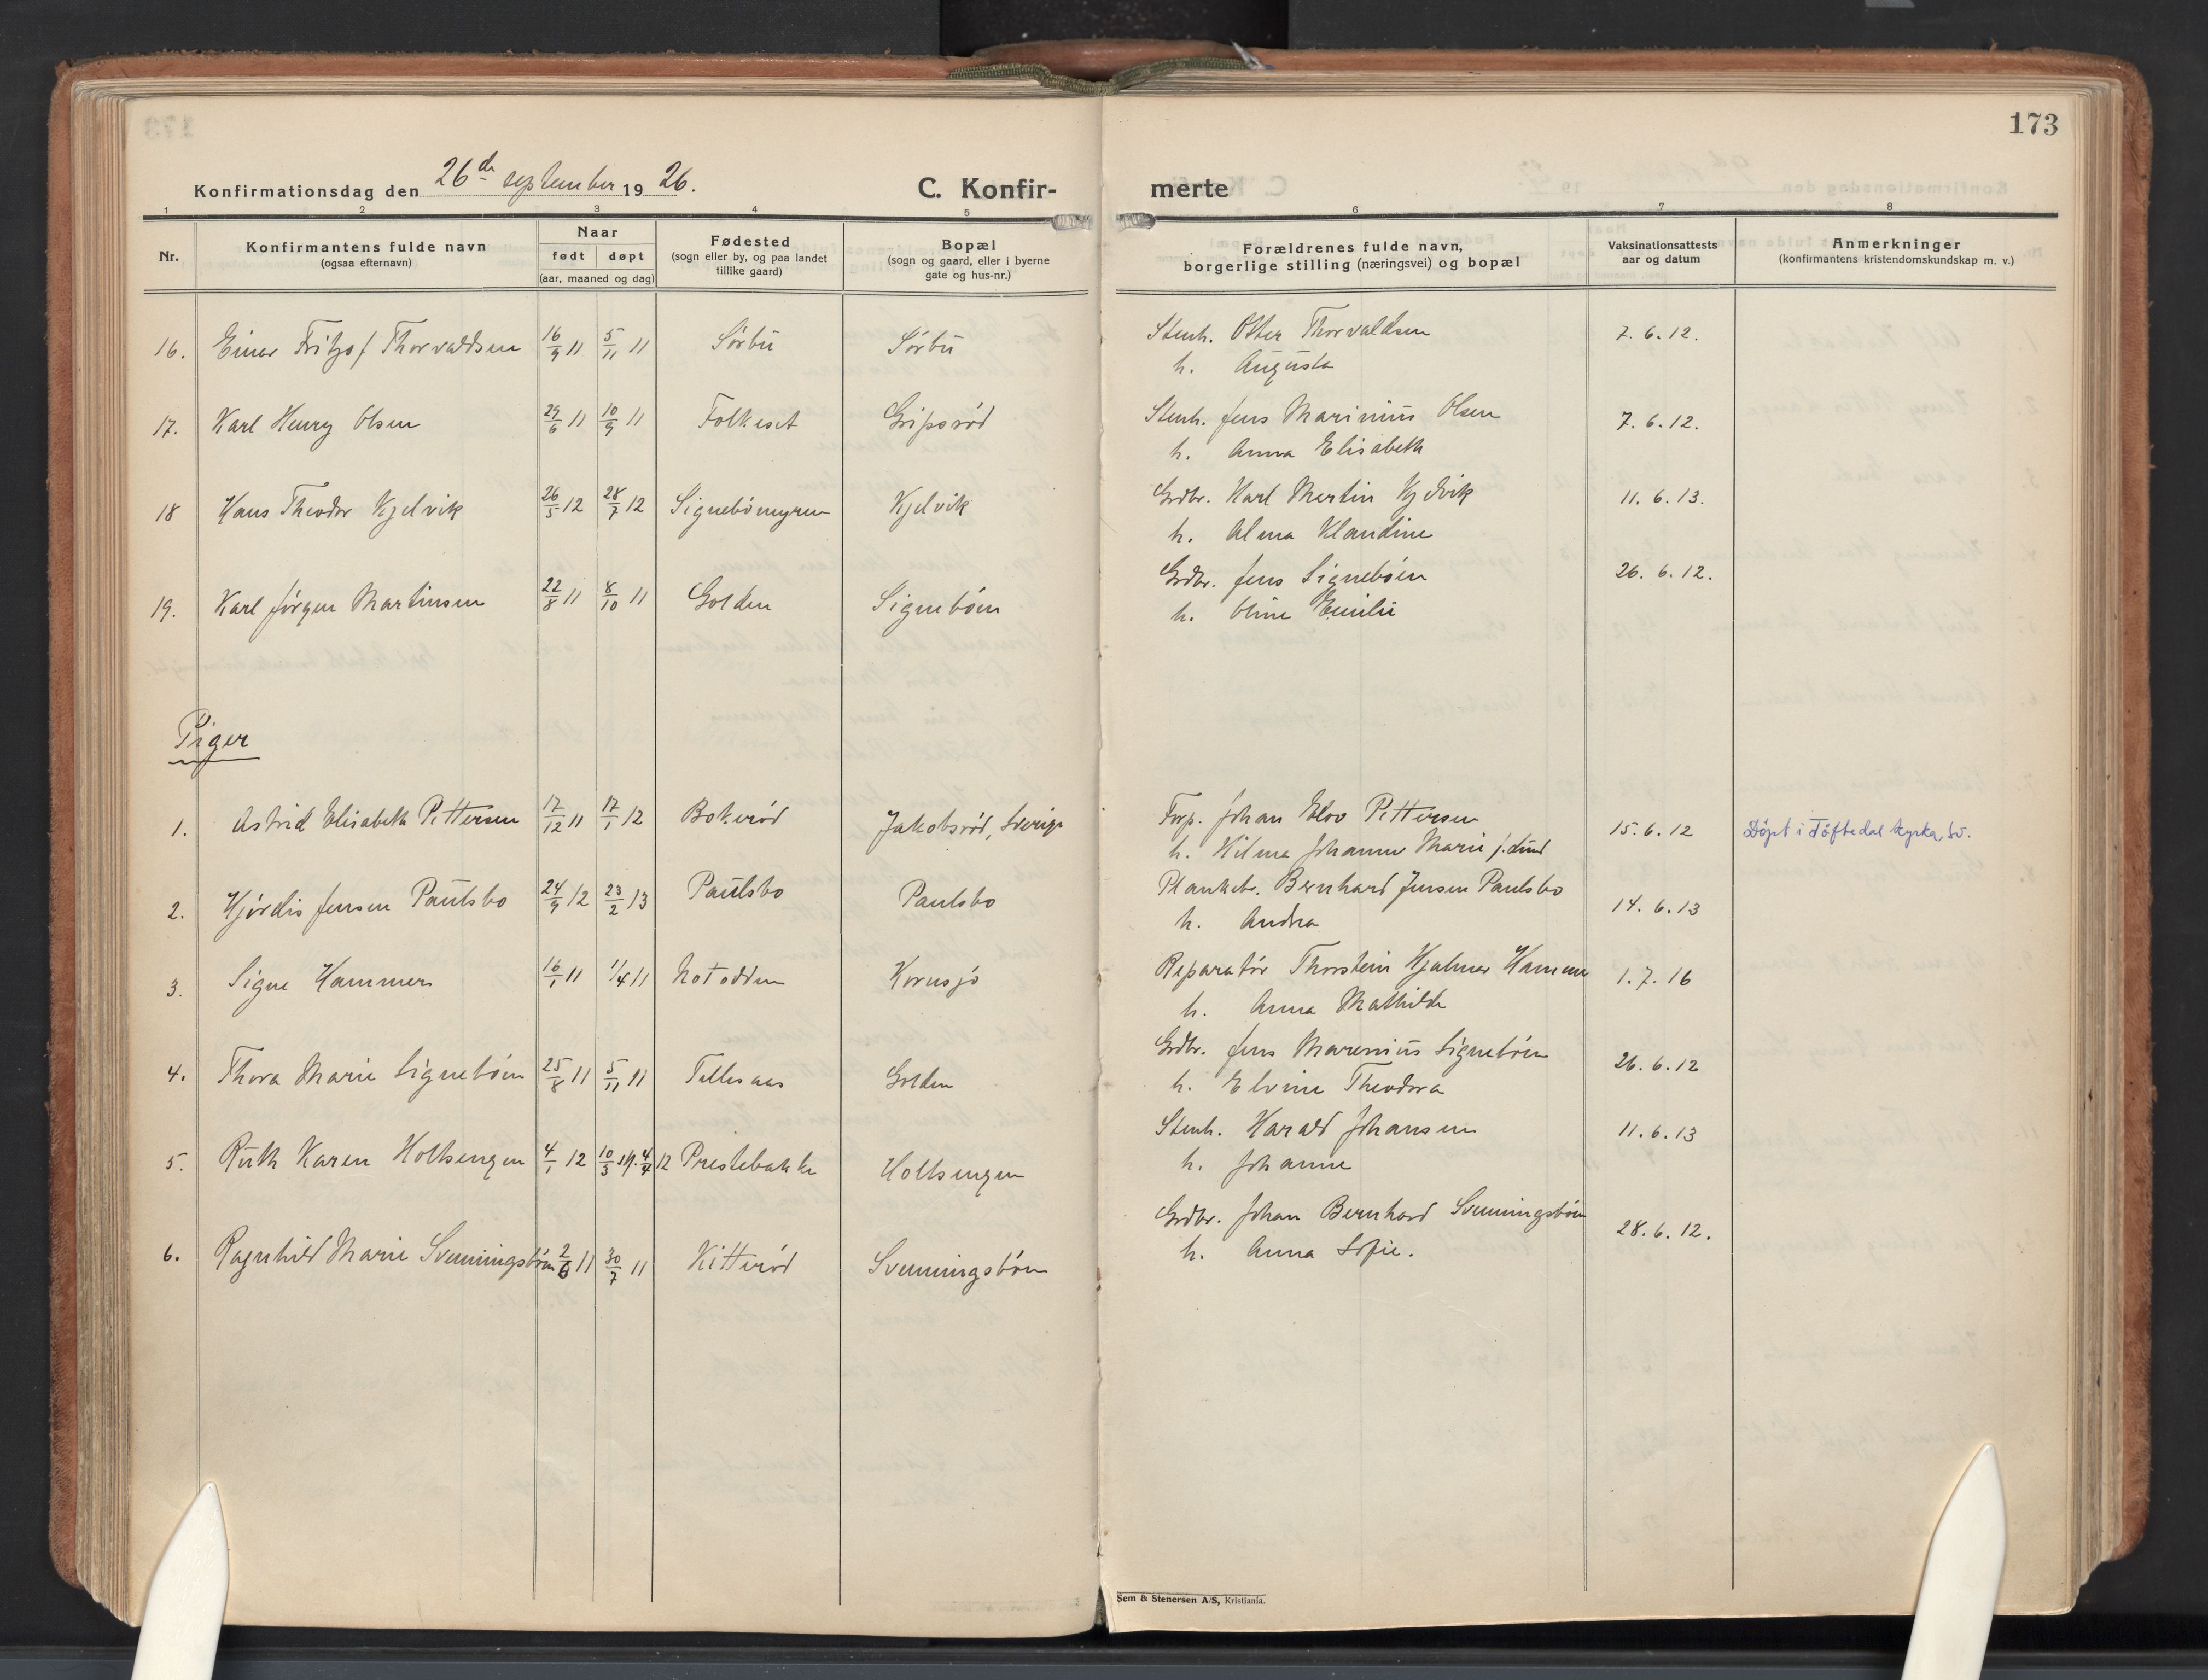 173
Konfirmationsdag den 26de september 1926.
C. Konfirmerte
1 2 3 4 5 6 7 8
Nr.
Konfirmantens fulde navn
(ogsaa efternavn)
Naar
født døpt
(aar, maaned og dag)
Fødested
(sogn eller by, og paa landet
tillike gaard)
Bopæl
(sogn og gaard, eller i byerne
gate og hus-nr.)
Forældrenes fulde navn,
borgerlige stilling (næringsvei) og bopæl
Vaksinationsattests
aar og datum
Anmerkninger
(konfirmantens kristendomskundskap m. v.)
16. Einar Fritjof Thorvaldsen 16/9 11 5/11 11 Sørbü Sørbü Stenh. Otter Thorvaldsen 7.6.12.
h. Augusta
17. Karl Henry Olsen 29/6 11 10/9 11 Folkeset Gripsrød Stenh. Jens Marinius Olsen 7.6.12.
h. Anna Elisabeth
18 Hans Theodor Kjelvik 26/5 12 28/7 12 Signebömyren Kjelvik Grdbr. Karl Martin Kjelvik 11.6.13.
h. Alma Klaudine
19. Karl Jörgen Martinsen 22/8 11 8/10 11 Golden Signebøen Grdbr. Jens Signebøen 26.6.12.
h. Oline Emilie
Piger
1. Astrid Elisabeth Pettersen 17/12 11 17/1 12 Bokerød Jakobsrød, Sverige Forp. Johan Elov Pettersen 15.6.12 Döpt i Töftedal kyrka, Sv.
h. Hilma Johanne Marie f. Lund
2. Hjördis Jensen Paulsbo 24/9 12 23/2 13 Paulsbo Paulsbo Plankeb. Bernhard Jensen Paulsbo 14.6.13
h. Andrea
3. Signe Hammer 16/1 11 1/4 11 Notodden Kornsjø Reparatør Thorstein Hjalmar Hammer 1.7.16
h. Anna Mathilde
4. Thora Marie Signebøen 25/8 11 5/11 11 Tellesaas Golden Grdbr. Jens Marenius Signebøen 26.6.12
h. Elvine Theodora
5. Ruth Karen Holtsengen 4/1 12 10/3 st. 4/4 12 Prestebakke Holtsengen Stenh. Harald Johansen 11.6.13
h. Johanne
6. Ragnhild Marie Svenningsbøen 2/6 11 30/7 11 Kitterød Svenningsbøen Grdbr. Johan Bernhard Svenningsbøen 28.6.12.
h. Anna Sofie.
Sem & Stenersen A/S, Kristiania.